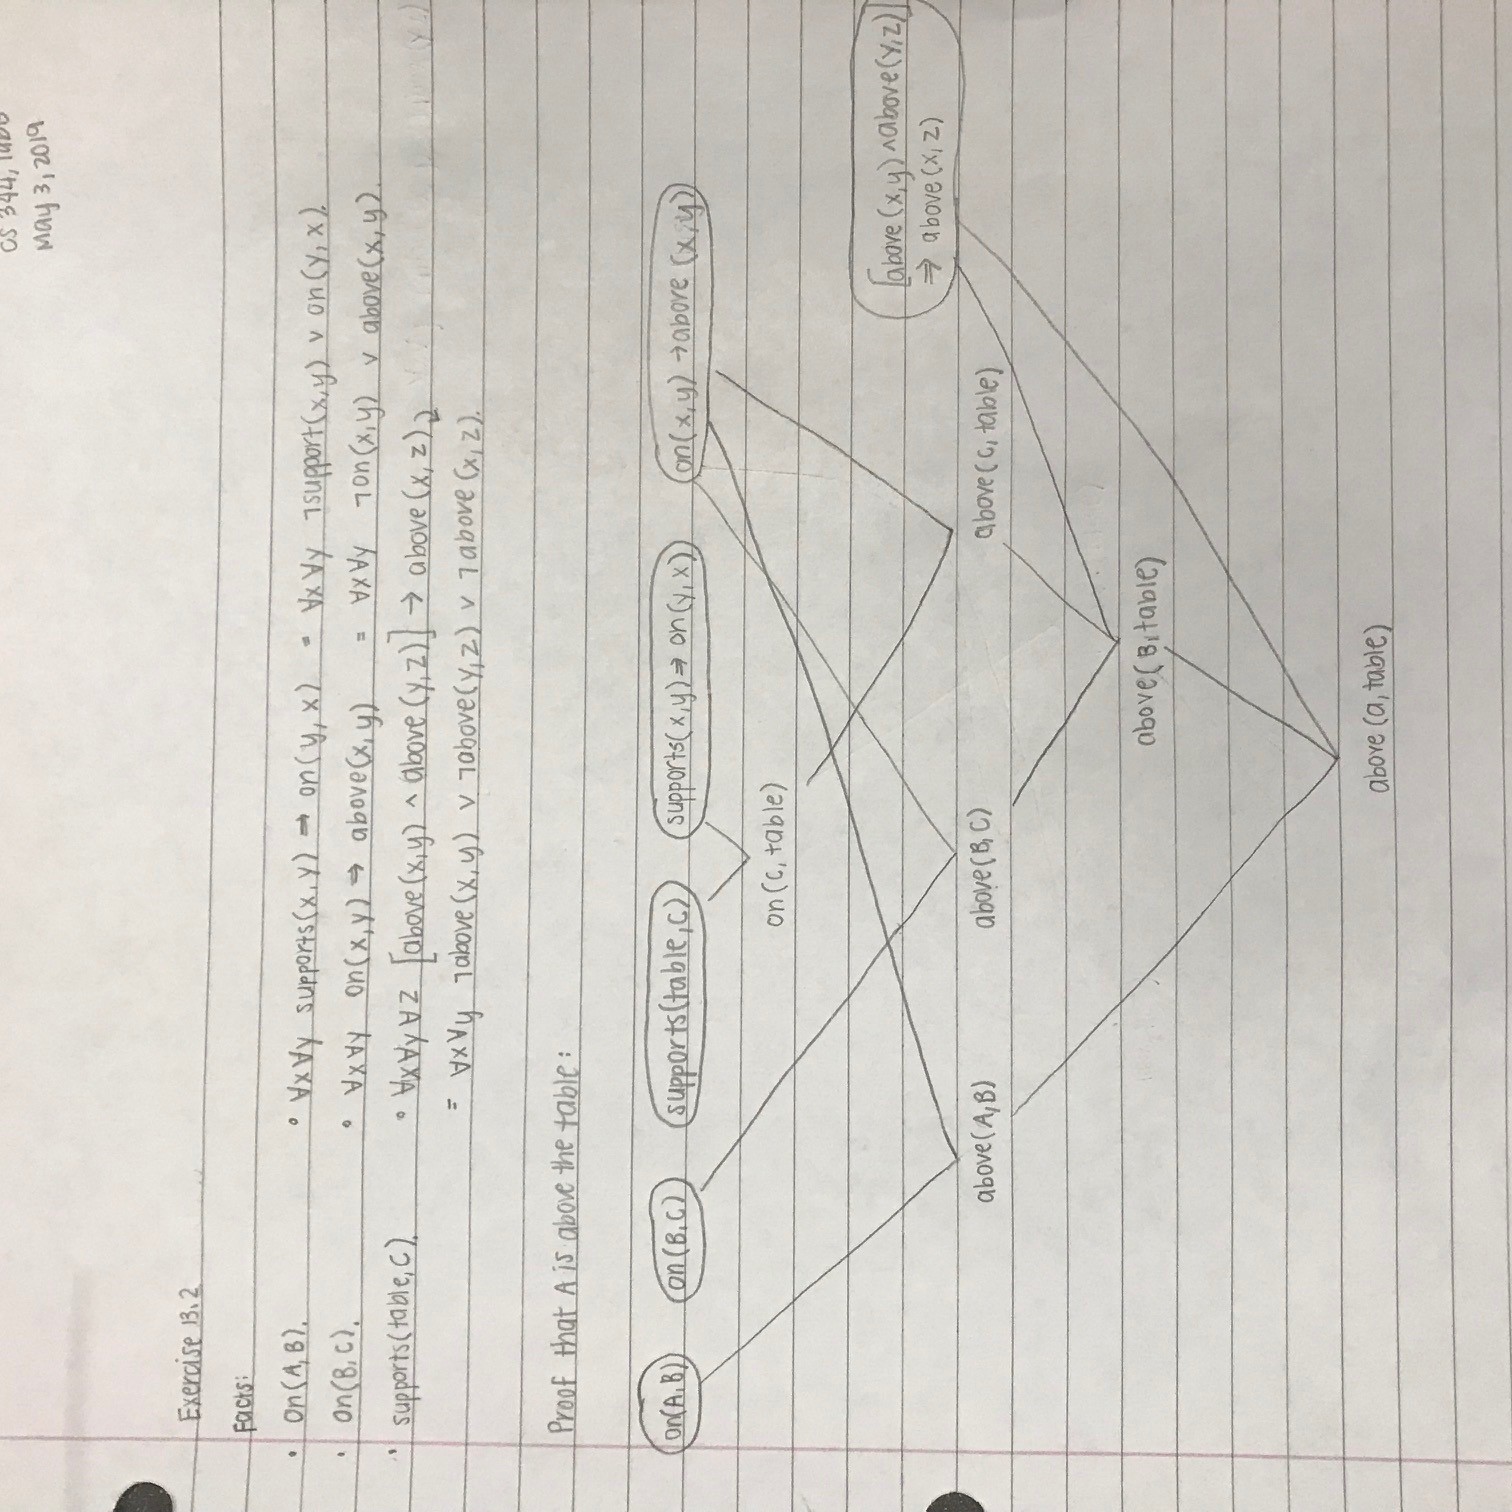 CS 344,
May 3, 2019
Exercise 13.2
Facts:
• on(A,B). • ∀x∀y supports(x,y) ⇒ on(y,x) = ∀x∀y ¬support(x,y) ∨ on(y,x).
• on(B,C). • ∀x∀y on(x,y) ⇒ above(x,y) = ∀x∀y ¬on(x,y) ∨ above(x,y).
• supports(table,C). • ∀x∀y∀z [above(x,y) ∧ above(y,z)] → above(x,z)
= ∀x∀y ¬above(x,y) ∨ ¬above(y,z) ∨ ¬above(x,z).
Proof that A is above the table:
on(A,B) on(B,C) supports(table,C) supports(x,y) ⇒ on(y,x) on(x,y) → above(x,y)
on(C,table)
[above(x,y) ∧ above(y,z)]
⇒ above(x,z)
above(A,B) above(B,C) above(C,table)
above(B,table)
above(a,table)